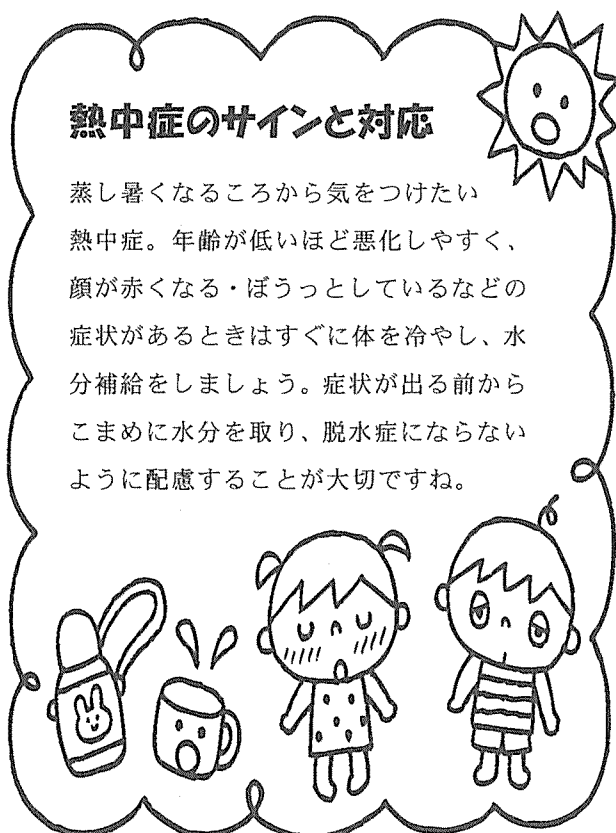 熱中症のサインと対応
蒸し暑くなるころから気をつけたい
熱中症。年齢が低いほど悪化しやすく、
顔が赤くなる・ぼうっとしているなどの
症状があるときはすぐに体を冷やし、水
分補給をしましょう。症状が出る前から
こまめに水分を取り、脱水症にならない
ように配慮することが大切ですね。